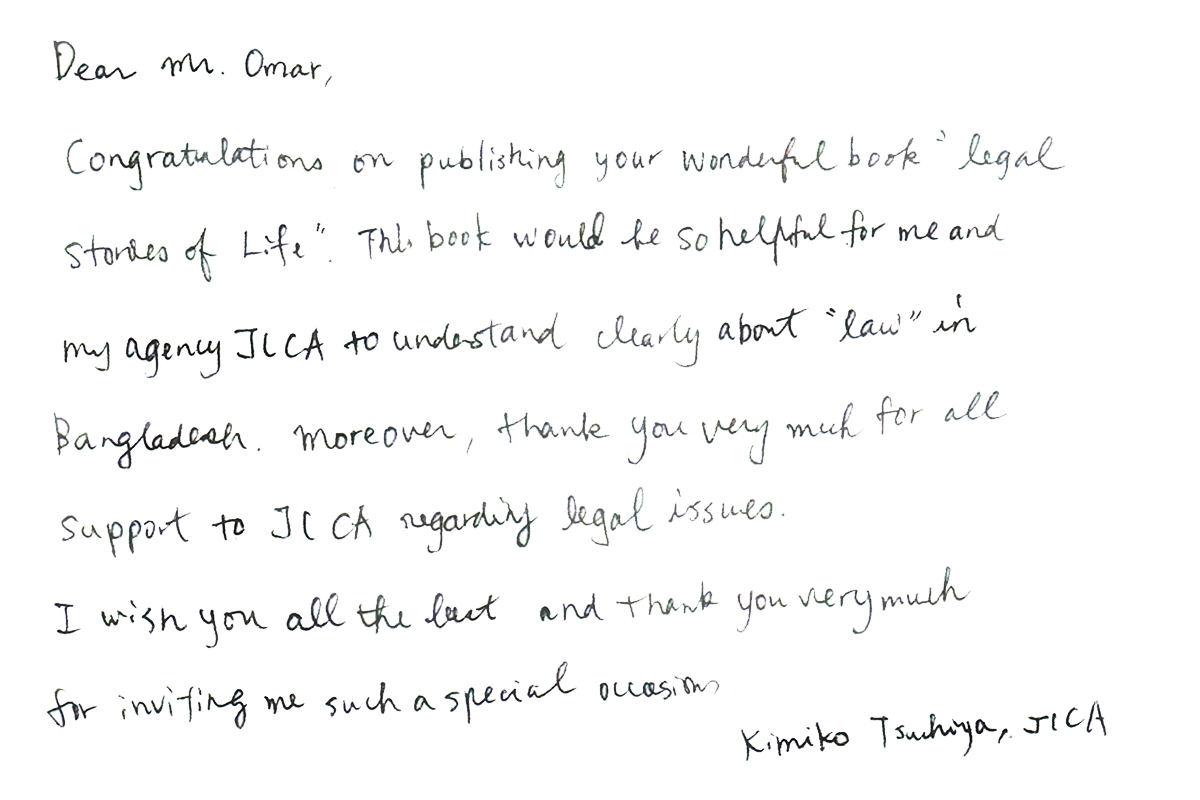 Dear Mr. Omar,
Congratulations on publishing your wonderful book "legal
stories of Life". This book would be so helpful for me and
my agency JICA to understand clearly about "law" in
Bangladesh. Moreover, thank you very much for all
support to JICA regarding legal issues.
I wish you all the best and thank you very much
for inviting me such a special occasion
Kimiko Tsuchiya, JICA